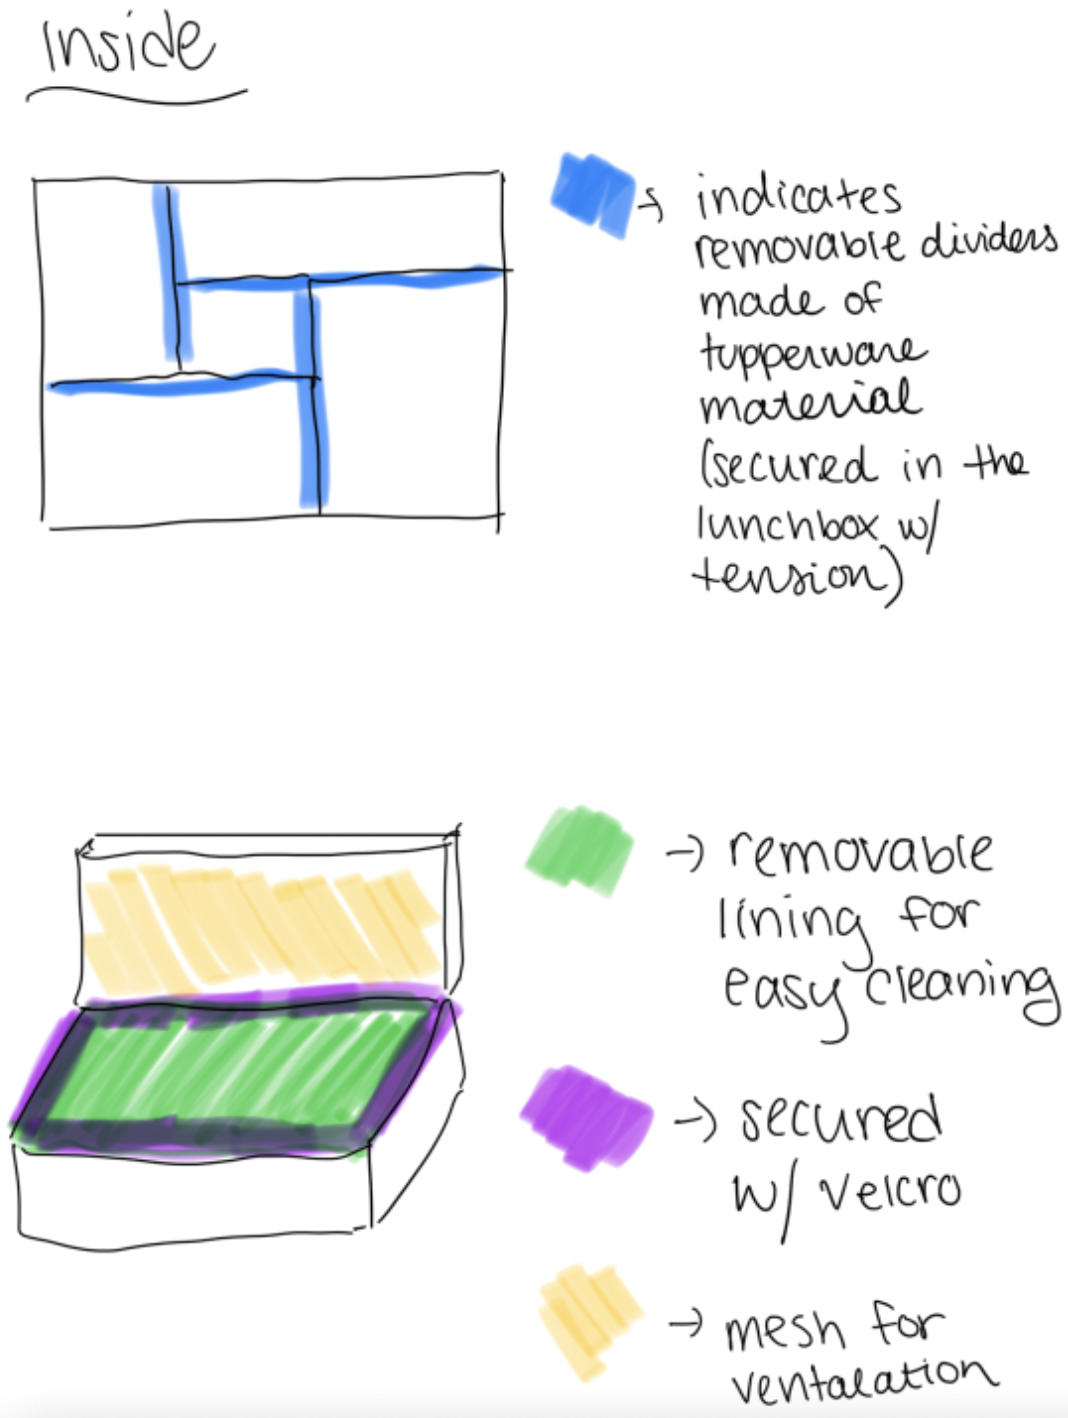 Inside
→ indicates
removable dividers
made of
tupperware
material
(secured in the
lunchbox w/
tension)
→ removable
lining for
easy cleaning
→ secured
w/ velcro
→ mesh for
ventalation